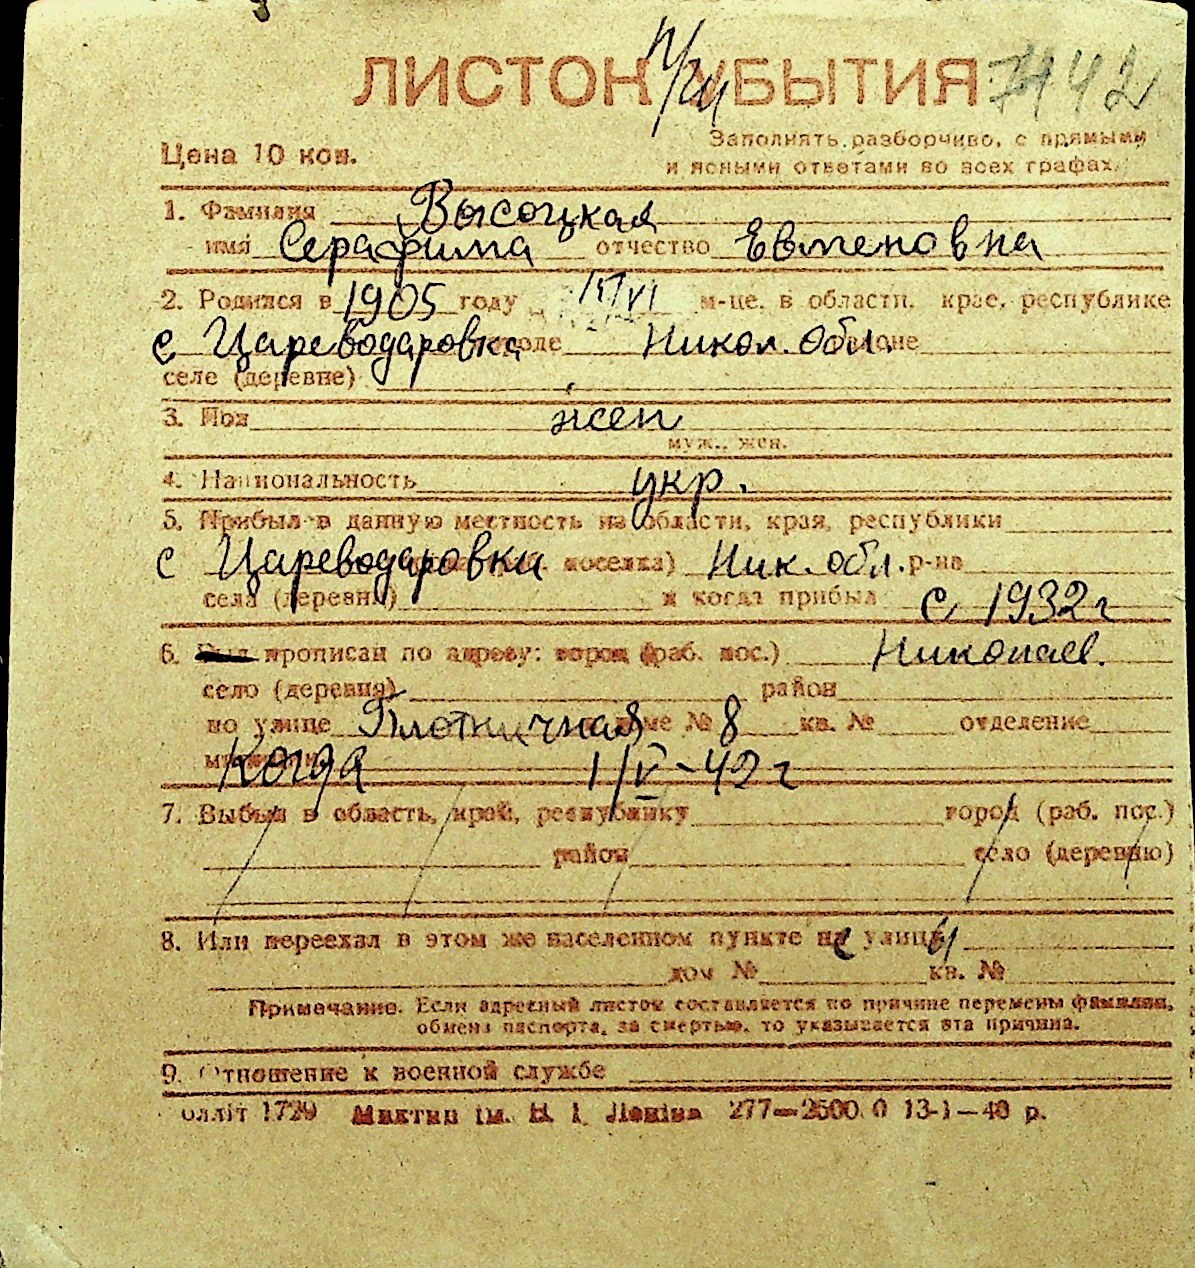 ЛИСТОК УБЫТИЯ 7442
Цена 10 коп.
Заполнять разборчиво, с прямыми
и ясными ответами во всех графах.
1. Фамилия Высоцкая
имя Серафима отчество Евменовна
2. Родился в 1905 году VI м-це, в области, крае, республике
с Цареводаровка городе Никол. обл. районе
селе (деревне)
3. Пол жен
муж., жен.
4. Национальность укр.
5. Прибыл в данную местность из области, края, республики
с Цареводаровки поселка) Ник. обл. р-на
села (деревни) и когда прибыл с 1932 г
6. прописан по адресу: город (раб. пос.) Николаев.
село (деревня) район
по улице Плотничная доме № 8 кв. № отделение
Когда 1/V-42 г
7. Выбыл в область, край, республику город (раб. пос.)
район село (деревню)
8. Или переехал в этом же населенном пункте на улицу
дом № кв. №
Примечание. Если адресный листок составляется по причине перемены фамилии,
обмена паспорта, за смертью, то указывается эта причина.
9. Отношение к военной службе
олліт 1729 Миктип ім. В. І. Леніна 277—2500.0 13-1—40 р.